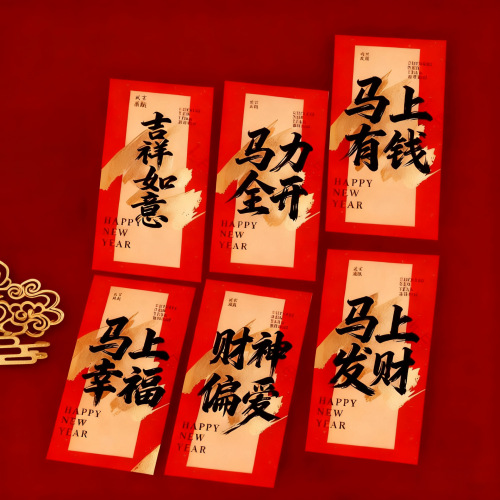 吉祥如意
HAPPY
NEW
YEAR
马力
全开
HAPPY
NEW
YEAR
马上
有钱
HAPPY
NEW
YEAR
马上
幸福
HAPPY
NEW
YEAR
财神
偏爱
HAPPY
NEW
YEAR
马上
发财
HAPPY
NEW
YEAR